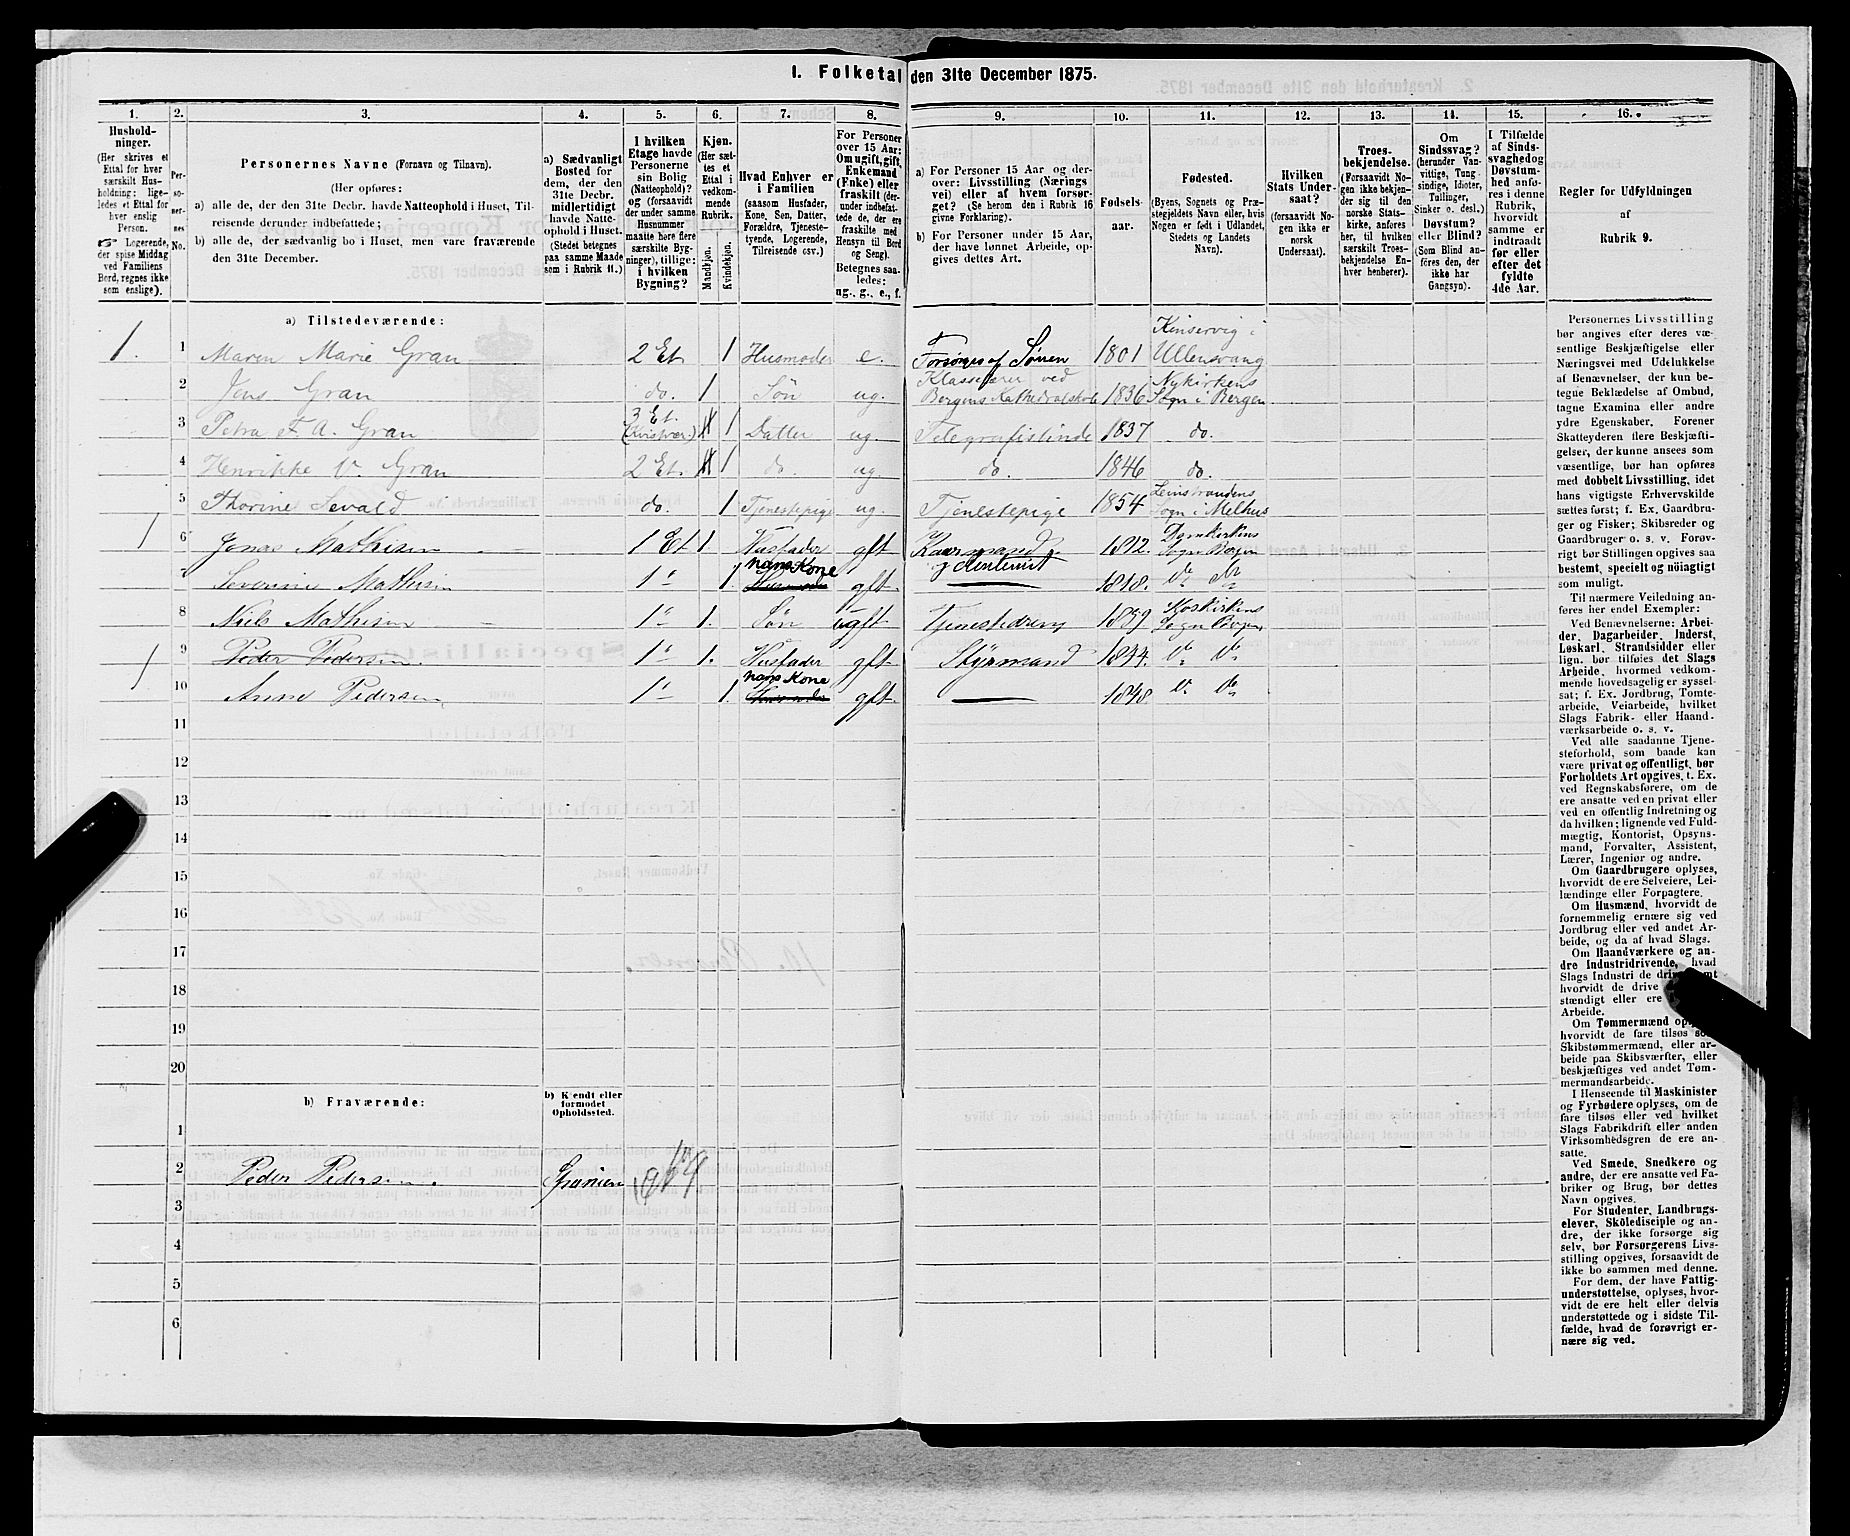 1. Folketal den 31te December 1875.
1.
Hushold-
ninger.
(Her skrives et
Ettal for hver
særskilt Hus-
holdning; lige-
ledes et Ettal for
hver enslig
Person.
Logerende,
der spise Middag
ved Familiens
Bord, regnes ikke
som enslige).
2.
Per-
so-
ner-
nes
No.
3.
Personernes Navne (Fornavn og Tilnavn).
(Her opføres:
a) alle de, der den 31te Decbr. havde Natteophold i Huset, Til-
reisende derunder indbefattede;
b) alle de, der sædvanlig bo i Huset, men vare fraværende
den 31te December.
4.
a) Sædvanligt
Bosted for
dem, der den
31te Decbr.
midlertidigt
havde Natte-
ophold i Huset.
(Stedet betegnes
paa samme Maade
som i Rubrik 11.)
5.
I hvilken
Etage havde
Personerne
sin Bolig
(Natteophold)?
og (forsaavidt
der under samme
Husnummer
maatte høre flere
særskilte Byg-
ninger), tillige:
i hvilken
Bygning?
6.
Kjøn.
(Her sæt-
tes et
Ettal i
vedkom-
mende
Rubrik.
Mandkjøn.
Kvindekjøn.
7.
Hvad Enhver er
i Familien
(saasom Husfader,
Kone, Søn, Datter,
Forældre, Tjeneste-
tyende, Logerende,
Tilreisende osv.)
8.
For Personer
over 15 Aar:
Om ugift, gift,
Enkemand
(Enke) eller
fraskilt (der-
under indbefat-
tede de, der ere
fraskilte med
Hensyn til Bord
og Seng).
Betegnes saa-
ledes:
ug., g., e., f.
9.
a) For Personer 15 Aar og der-
over: Livsstilling (Nærings
vei) eller af hvem forsør-
get? (Se herom den i Rubrik 16
givne Forklaring).
b) For Personer under 15 Aar,
der have lønnet Arbeide, op-
gives dettes Art.
10.
Fødsels-
aar.
11.
Fødested.
(Byens, Sognets og Præ-
stegjeldets Navn eller, hvis
Nogen er født i Udlandet,
Stedets og Landets
Navn).
12.
Hvilken
Stats Under-
saat?
(forsaavidt No-
gen ikke er
norsk
Undersaat).
13.
Troes-
bekjendelse.
(Forsaavidt No-
gen ikke bekjen-
der sig til den
norske Stats-
kirke, anføres
her, til hvilken
særskilt Troes-
bekjendelse En-
hver henhører).
14.
Om
Sindssvag?
(herunder Van-
vittige, Tung-
sindige, Idioter,
Tullinger,
Sinker o. desl.)
Døvstum?
eller Blind?
(Som Blind an-
føres den, der
ikke har
Gangsyn).
15.
I Tilfælde
af Sinds-
svaghed og
Døvstum-
hed anfø-
res i denne
Rubrik,
hvorvidt
samme er
indtraadt
før eller
efter det
fyldte
4de Aar.
16.
Regler for Udfyldningen
af
Rubrik 9.
a) Tilstedeværende:
1. 1 Maren Marie Gran 2 Et 1 Husmoder e. Forsørges af Sønen 1801 Kinservig i Ullensvang
2 Jens Gran do. 1 Søn ug. Klasselærer ved Bergens Kathedralskole 1836 Nykirkens Sogn i Bergen
3 Petra F. A. Gran 3 Et. (Kvistvær.) 1 Datter ug. Telegrafistinde 1837 do.
4 Henrikke V. Gran 2 Et. 1 do. ug. do. 1846 do.
5 Thorine Sevald do. 1 Tjenestepige ug. Tjenestepige 1854 Leinstrandens Sogn i Melhus
1 6 Jonas Mathisen 1 Et 1. Husfader gft 1812. Domkirkens Sogn Bergen
7 Severine Mathisen 1" 1. hans Kone gft. 1818. do do
8 Niels Mathisen 1" 1. Søn ugft Tjenestedreng 1859 Korskirkens Sogn Bergen
1 9 Peder Pedersen. 1" 1. Husfader gft. Styrmand 1844. do do
10 Anne Pedersen 1" 1. hans Kone gft. 1848. do do
11
12
13
14
15
16
17
18
19
20
b) Fraværende:
b) Kjendt eller
formodet
Opholdssted.
1
2 Peder Pedersen. Spanien
3
4
5
6
Personernes Livsstilling
bør angives efter deres væ-
sentlige Beskjæftigelse eller
Næringsvei med Udelukkelse
af Benævnelser, der kun be-
tegne Beklædelse af Ombud,
tagne Examina eller andre
ydre Egenskaber. Forener
Skatteyderen flere Beskjæfti-
gelser, der kunne ansees som
væsentlige, bør han opføres
med dobbelt Livsstilling, idet
hans vigtigste Erhvervskilde
sættes først; f. Ex. Gaardbru-
ger og Fisker; Skibsreder og
Gaardbruger o. s. v. Forøv-
rigt bør Stillingen opgives saa
bestemt, specielt og nöiagtigt
som muligt.
Til nærmere Veiledning an-
føres her endel Exempler:
Ved Benævnelserne: Arbei-
der, Dagarbeider, Inderst,
Løskarl, Strandsidder eller
lign. bør tilføies det Slags
Arbeide, hvormed vedkom-
mende hovedsagelig er syssel-
sat; f. Ex. Jordbrug, Tomte-
arbeide, Veiarbeide, hvilket
Slags Fabrik- eller Haand-
værksarbeide o. s. v.
Ved alle saadanne Tjene-
steforhold, som baade kan
være privat og offentligt, bør
Forholdets Art opgives, t. Ex.
ved Regnskabsførere, om de
ere ansatte ved en privat eller
ved en offentlig Indretning og
da hvilken; lignende ved Fuld-
mægtig, Kontorist, Opsyns-
mand, Forvalter, Assistent,
Lærer, Ingeniør og andre.
Om Gaardbrugere oplyses,
hvorvidt de ere Selveiere, Lei-
lændinge eller Forpagtere.
Om Husmænd, hvorvidt de
fornemmelig ernære sig ved
Jordbrug eller ved andet Ar-
beide, og da af hvad Slags.
Om Haandværkere og an-
dre Industridrivende, hvad
Slags Industri de
hvorvidt de drive
stændigt eller ere
Arbeide.
Om Tømmermænd
hvorvidt de fare tilsøs
Skibstømmermænd, eller ar-
beide paa Skibsværfter, eller
beskjæftiges ved andet Tøm-
mermandsarbeide.
I Henseende til Maskinister
og Fyrbødere oplyses, om de
fare tilsøs eller ved hvilket
Slags Fabrikdrift eller anden
Virksomhedsgren de ere an-
satte.
Ved Smede, Snedkere og
andre, der ere ansatte ved Fa-
briker og Brug, bør dettes
Navn opgives.
For Studenter, Landbrugs-
elever, Skoledisciple og an-
dre, der ikke forsørge sig
selv, bør Forsørgerens Livs-
stilling opgives, forsaavidt de
ikke bo sammen med denne.
For dem, der have Fattig-
understøttelse, oplyses, hvor-
vidt de ere helt eller delvis
understøttede og i sidste Til-
fælde, hvad de forøvrigt er-
nære sig ved.